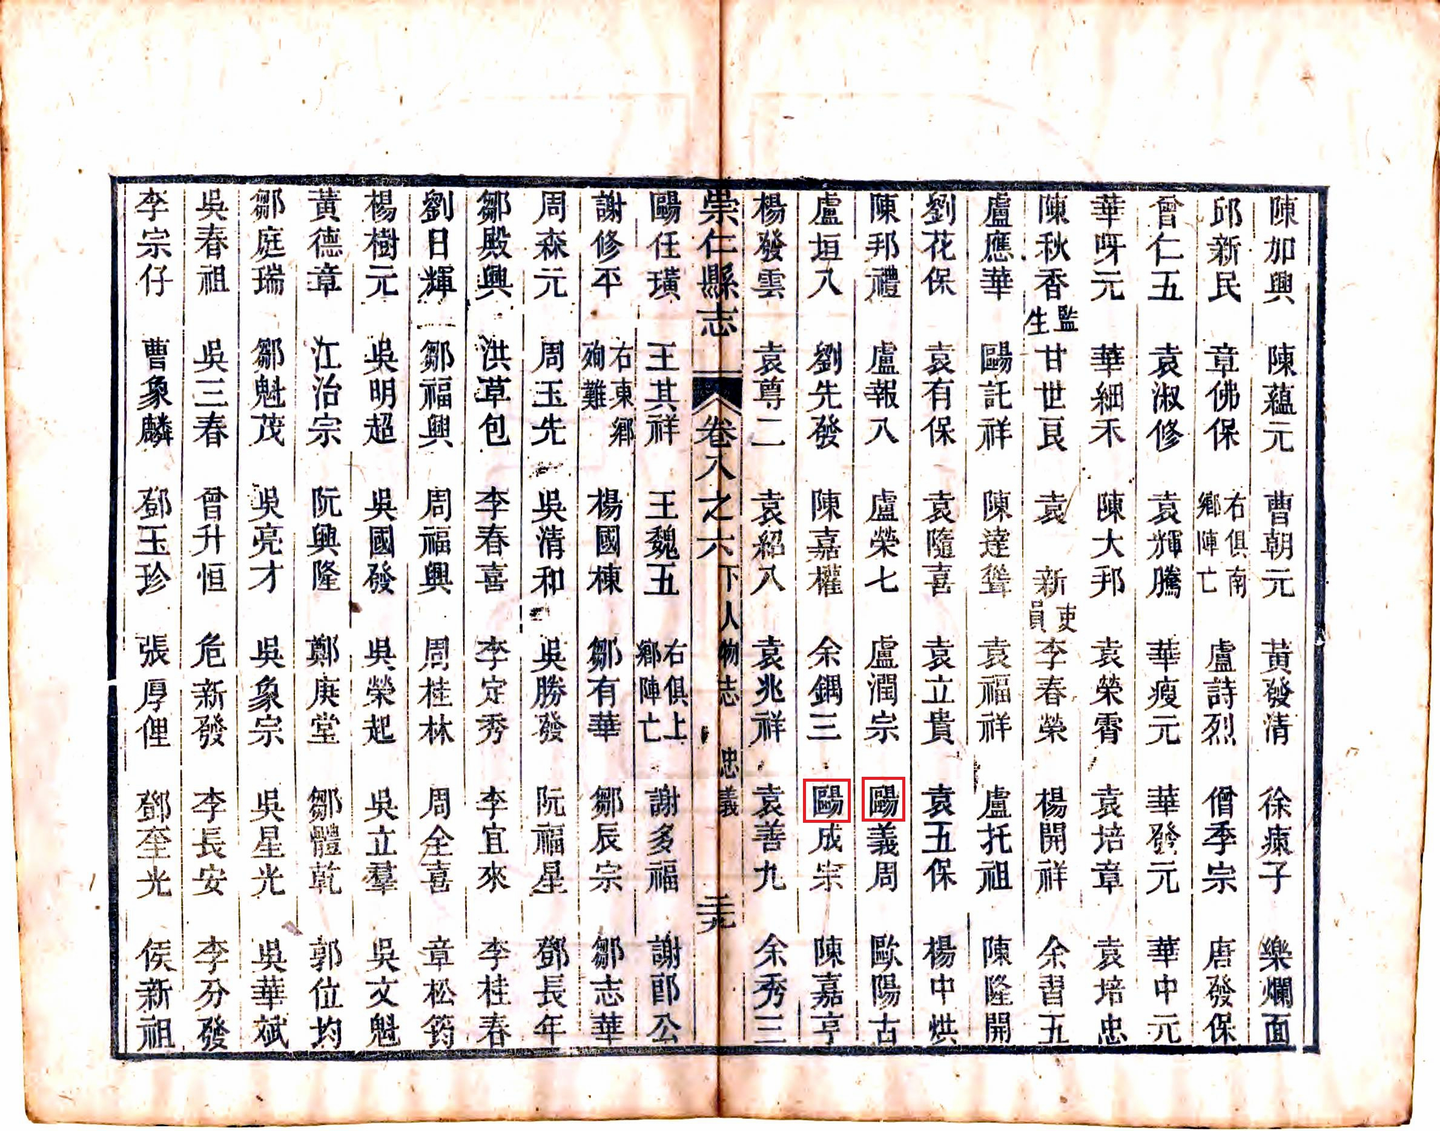 陳加興　陳蘊元　曹朝元　黃發清　徐瘐子　樂爛面
邱新民　章佛保　右俱南鄉陣亡　盧詩烈　僧季宗　唐發保
曾仁五　袁淑修　袁輝騰　華瘦元　華發元　華中元
華呀元　華細禾　陳大邦　袁榮霄　袁培章　袁培忠
陳秋香監生　甘世良　袁新吏員　李春榮　楊開祥　余習五
盧應華　𨞀託祥　陳達聳　袁福祥　盧托祖　陳隆開
劉花保　袁有保　袁隨喜　袁立貴　袁五保　楊中烘
陳邦禮　盧報八　盧榮七　盧潤宗　義周　歐陽古
盧垣八　劉先發　陳嘉權　余錫三　成宗　陳嘉亨
楊發雲　袁尊二　袁紹八　袁兆祥　袁善九　余秀三
崇仁縣志　卷八之六　下人物志　忠義　三九
任璜　王其祥　王魏五　右俱上鄉陣亡　謝多福　謝郎公
謝修平　右東鄉殉難　楊國棟　鄒有華　鄒辰宗　鄒志華
周森元　周玉先　吳清和　吳勝發　阮福星　鄧長年
鄒殿興　洪草包　李春喜　李定秀　李宜來　李桂春
劉日輝　鄒福興　周福興　周桂林　周全喜　章松筠
楊樹元　吳明超　吳國發　吳榮起　吳立羣　吳文魁
黃德章　江治宗　阮興隆　鄭庚堂　鄒體乾　郭位均
鄒庭瑞　鄒魁茂　吳亮才　吳象宗　吳星光　吳華斌
吳春祖　吳三春　曾升恒　危新發　李長安　李分發
李宗仔　曹象麟　鄧玉珍　張厚俚　鄧奎光　侯新祖